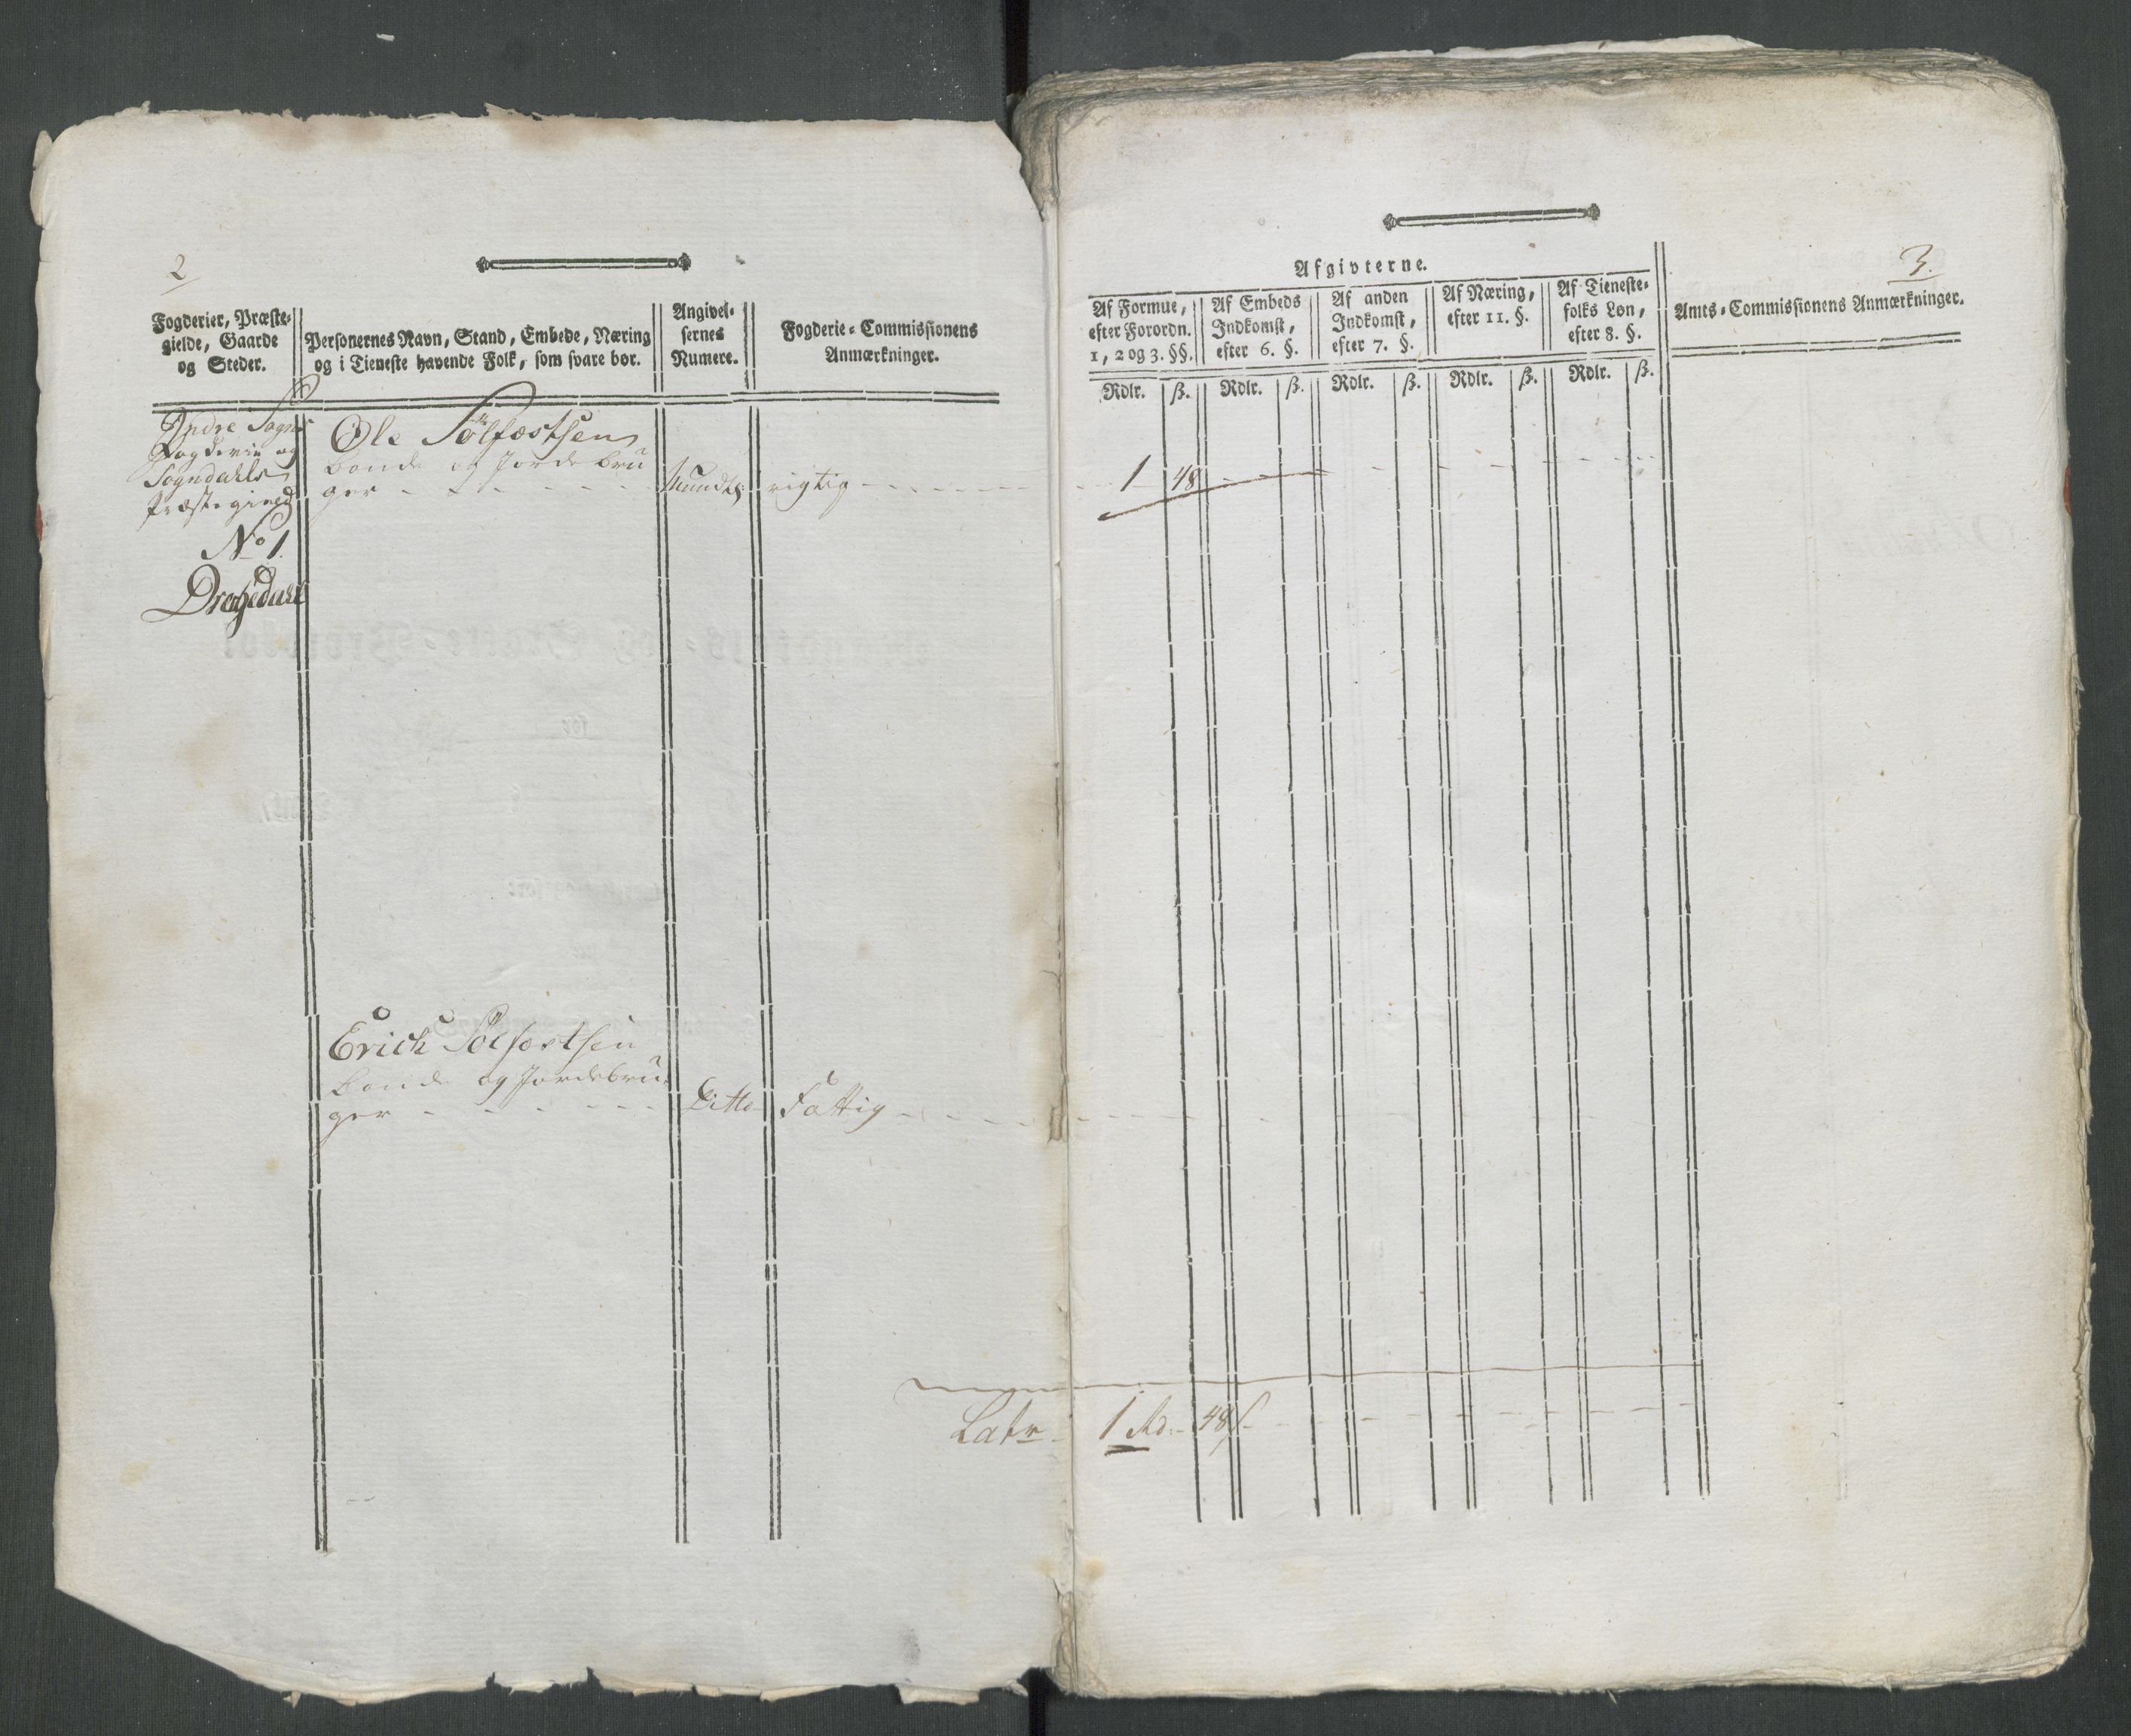 2
Fogderier, Præste-
gielde, Gaarde
og Steder.
Personernes Navn, Stand, Embede, Næring
og i Tieneste havende Folk, som svare bør.
Angivel-
sernes
Numere.
Fogderie-Commissionens
Anmærkninger.
Indre Sogns
Fogderie og
Sogndahls
Præstegield
No 1.
Ole Sölfæstsen
bonde og Jordebru
ger - - - - - -
Mundtl: rigtig - - - - -
Erich Sölfæstsen
bonde og Jordebru-
ger - - - - - -
Ditto
Fattig - - - -
3.
Afgivterne.
Af Formue,
efter Forordn.
1, 2 og 3. §§.
Af Embeds
Indkomst,
efter 6. §.
Af anden
Indkomst,
efter 7. §.
Af Næring,
efter 11. §.
Af Tieneste-
folks Løn,
efter 8. §.
Amts-Commissionens Anmærkninger.
Rdlr. ß. Rdlr. ß. Rdlr. ß. Rdlr. ß. Rdlr. ß.
1 48
Latr 1 Rd. 48 ß